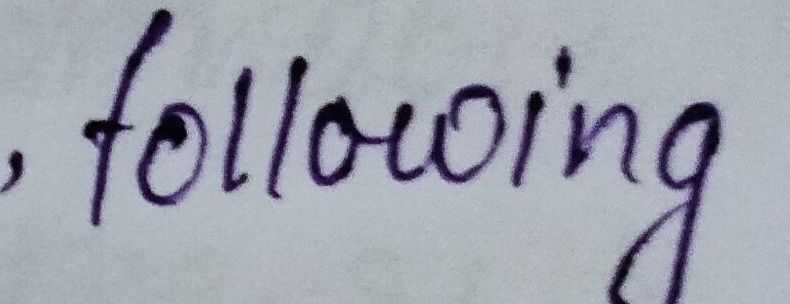 , following